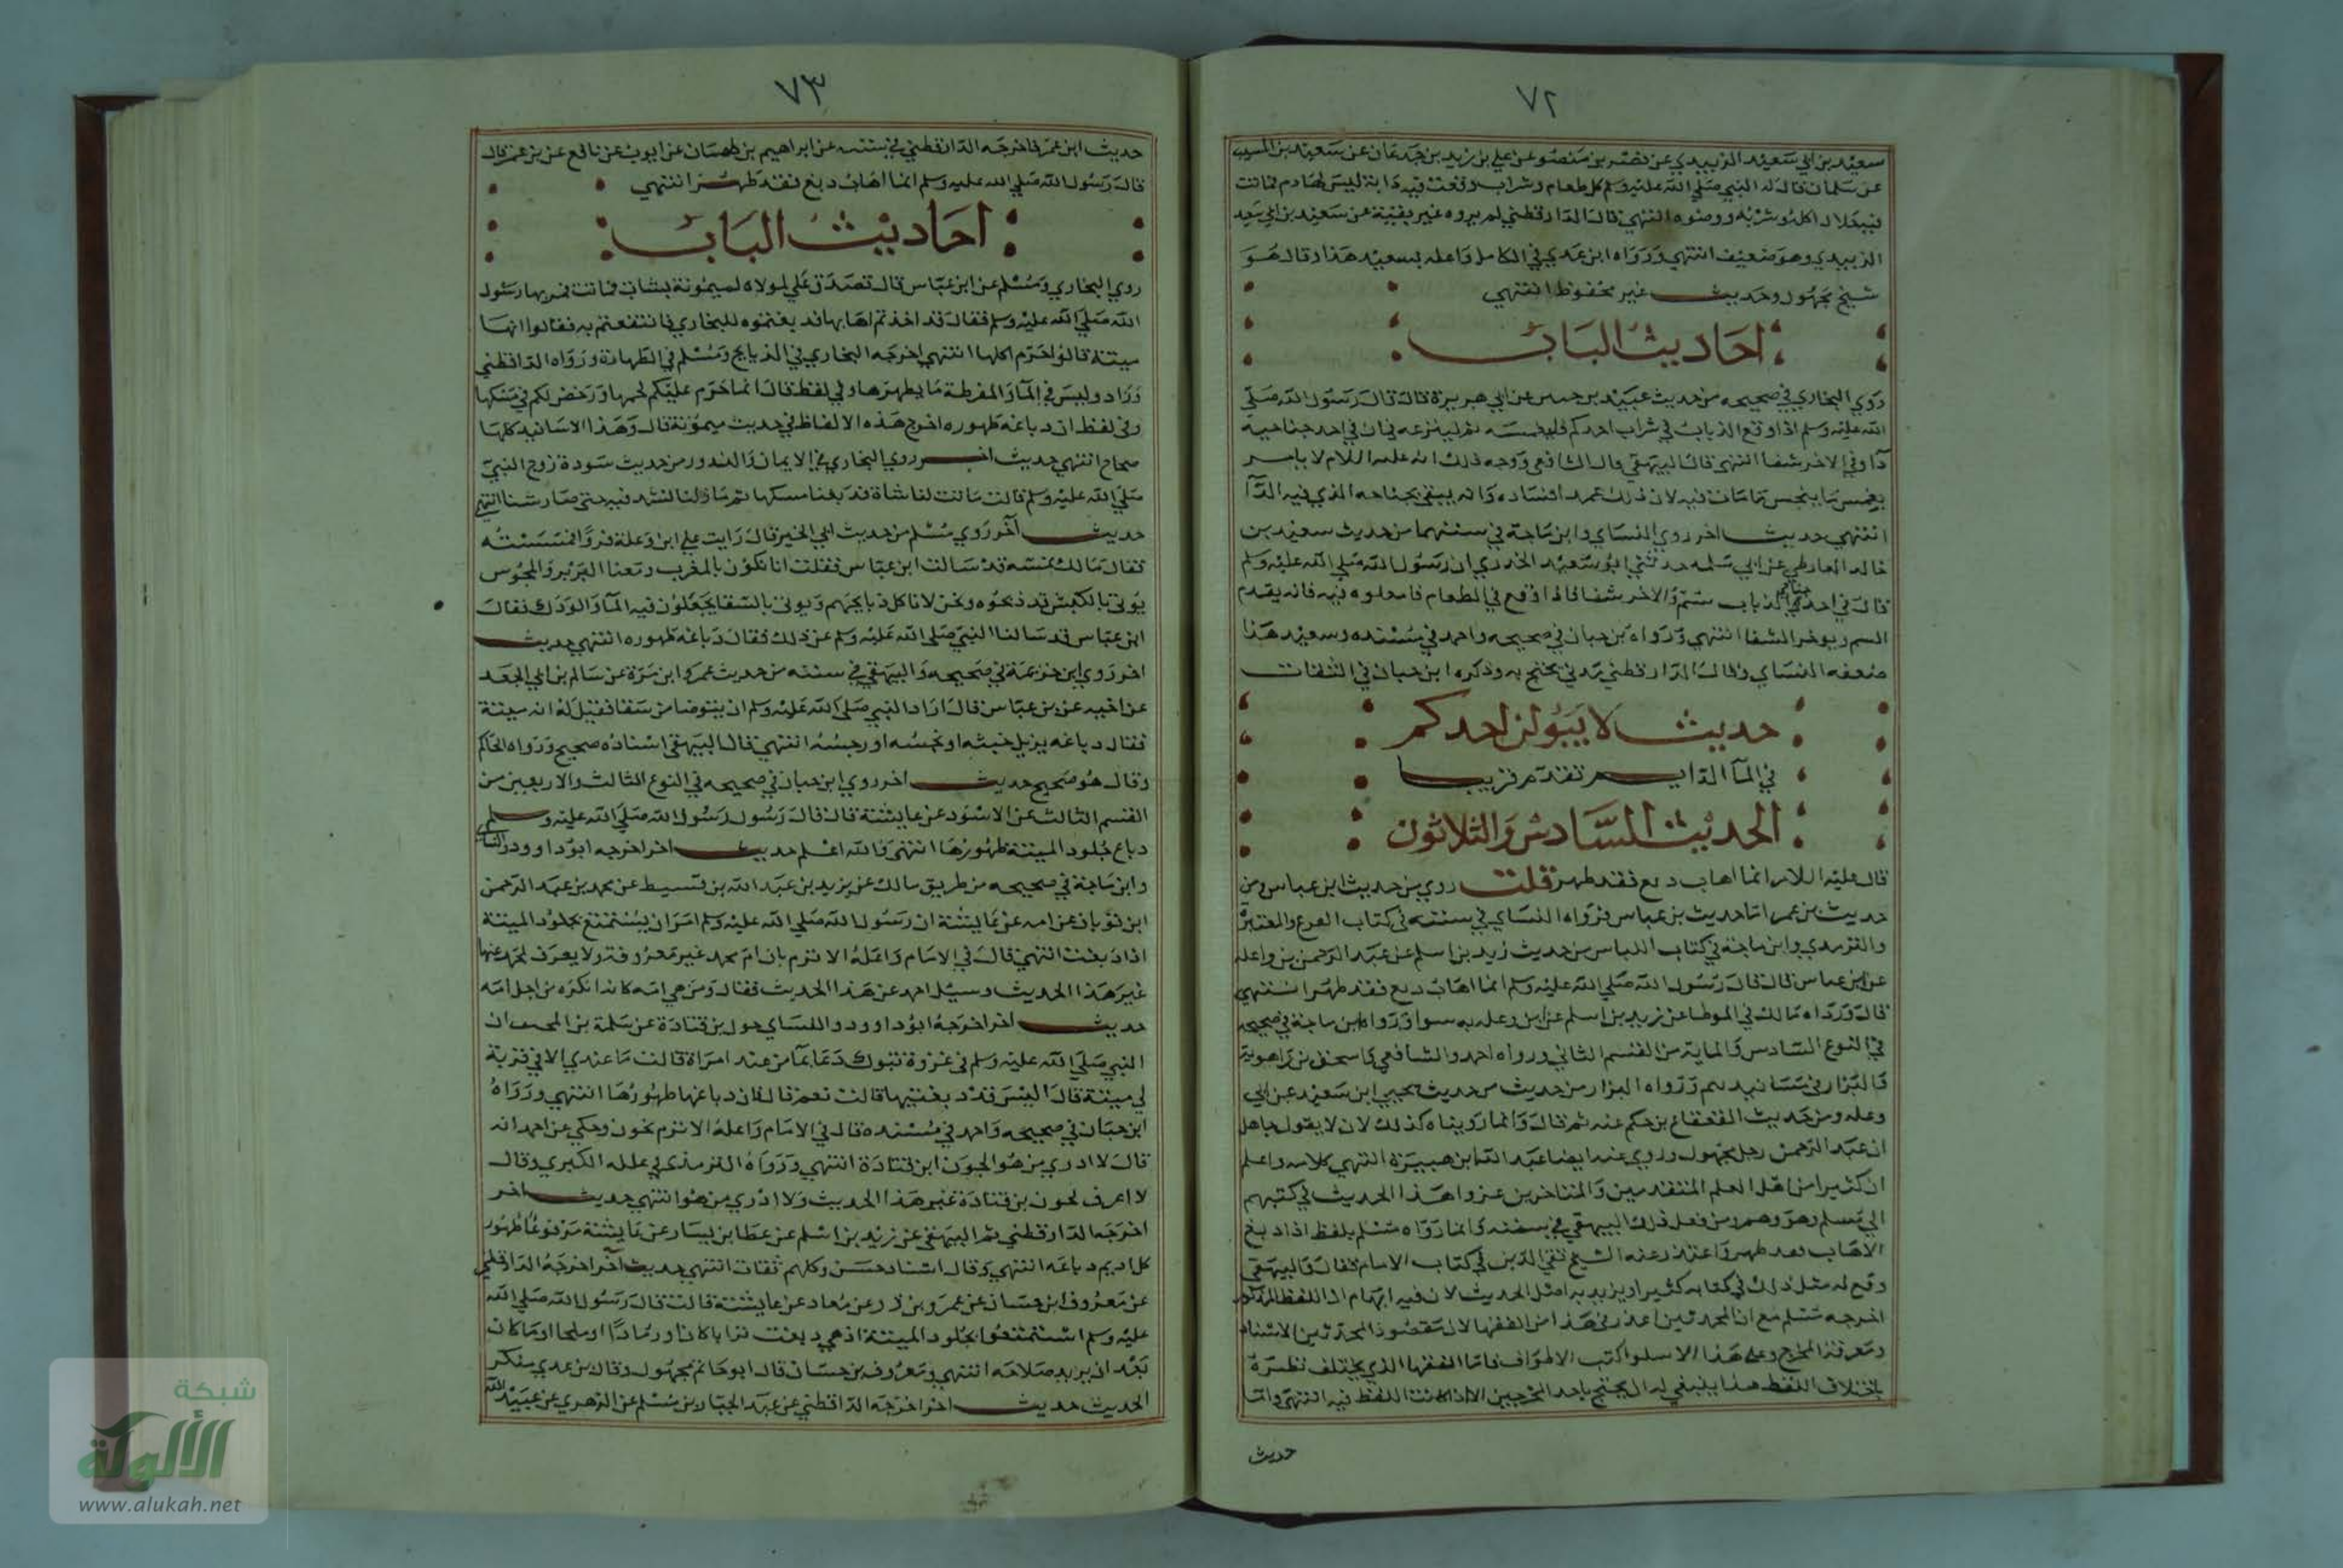 ٧٢
سعيد بن ابي سعيد الزبيدي عن بشر بن منصور عن علي بن زيد بن جدعان عن سعيد بن المسيب
عن سلمان قال قال له النبي صلي الله عليه وسلم كل طعام وشراب وقعت فيه دابة ليس لها دم فماتت
فيه حلال اكله وشربه ووضوه انتهي قال الدارقطني لم يروه غير بقية عن سعيد بن ابي سعيد
الزبيدي وهو ضعيف انتهي ورواه ابن عدي في الكامل واعله بسعيد هذا وقال هو
شيخ مجهول وحديثه غير محفوظ انتهي
احاديث الباب
روي البخاري في صحيحه من حديث عبيد بن حنين عن ابي هريرة قال قال رسول الله صلي
الله عليه وسلم اذا وقع الذباب في شراب احدكم فليغمسه ثم لينزعه فان في احد جناحيه
دآ وفي الاخر شفا انتهي قال البيهقي قال الشافعي ووجه ذلك انه عليه السلام لا يامر
بغمس ما ينجس ما مات فيه لان ذلك عمد افساده وانه يتقي بجناحه الذي فيه الدآ
انتهي حديث اخر روي النساي وابن ماجة في سننهما من حديث سعيد بن
خالد القارظي عن ابي سلمه حدثني ابو سعيد الخدري ان رسول الله صلي الله عليه وسلم
قال في احد جناحي الذباب سم والاخر شفا فاذا وقع في الطعام فامقلوه فيه فانه يقدم
السم ويوخر الشفا انتهي ورواه بن حبان في صحيحه واحمد في مسنده وسعيد هذا
ضعفه النساي وقال الدارقطني مدني يحتج به وذكره ابن حبان في الثقات
حديث لا يبولن احدكم
في المآ الدايم تقدم قريبا
الحديث السادس والثلاثون
قال عليه السلام ايما اهاب دبغ فقد طهر قلت روي من حديث ابن عباس ومن
حديث بن عمر اما حديث بن عباس فرواه النساي في سننه في كتاب الفرع والعتيرة
والترمدي وابن ماجة في كتاب اللباس من حديث زيد بن اسلم عن عبد الرحمن بن وعلة
عن ابن عباس قال قال رسول الله صلي الله عليه وسلم ايما اهاب دبغ فقد طهر انتهي
قال ورواه مالك في الموطا عن زيد بن اسلم عن ابن وعله به سوا ورواه ابن حبان في صحيحه
في النوع السادس والماية من القسم الثاني ورواه احمد والشافعي واسحق بن راهوية
والبزار في مسانيدهم ورواه البزار من حديث من حديث يحيي ابن سعيد عن ابي
وعله ومن حديث القعقاع بن حكم عنه ثم قال وانما رويناه كذلك لان لا يقول جاهل
ان عبد الرحمن رجل مجهول وروي عنه ايضا عبد الله ابن هبيرة انتهي كلامه واعلم
ان كثيرا من اهل العلم المتقدمين والمتاخرين عزوا هذا الحديث في كتبهم
الي مسلم وهو وهم ومن فعل ذلك البيهقي في سننه وانما رواه مسلم بلفظ اذا دبغ
الاهاب فقد طهر واعتذر عنه الشيخ تقي الدين في كتاب الامام فقال والبيهقي
وقع له مثل ذلك في كتابه كثيرا ويريد به اصل الحديث لان فيه ابهام ان اللفظ المذكور
اخرجه مسلم مع ان المحدثين اعذر في هذا من الفقها لان مقصود المحدثين الاسناد
ومعرفة المخرج وعلي هذا الاسلوب كتب الاطراف فاما الفقها الذي يختلف نظره
باختلاف اللفظ هذا ينبغي له ان يحتج باحد المخرجين الا اذا كانت اللفظ فيه انتهي واما
حديث
٧٣
حديث ابن عمر فاخرجه الدارقطني في سننه عن ابراهيم بن طهمان عن ايوب عن نافع عن بن عمر قال
قال رسول الله صلي الله عليه وسلم ايما اهاب دبغ فقد طهر انتهي
احاديث الباب
روي البخاري ومسلم عن ابن عباس قال تصدق علي مولاه لميمونة بشاة فماتت فمر بها رسول
الله صلي الله عليه وسلم فقال قد اخذتم اهابها فدبغتموه للبخاري فانتفعتم به فقالوا انها
ميتة قال انما حرم اكلها انتهي اخرجه البخاري في الذبايح ومسلم في الطهارة ورواه الدارقطني
وزاد وليس في المآ والقرظة ما يطهرها وفي لفظ قال انما حرم عليكم لحمها ورخص لكم في مسكها
وفي لفظ ان دباغه طهوره اخرج هذه الالفاظ في حديث ميمونة قال وهذا الاسانيد كلها
صحاح انتهي حديث اخر روي البخاري في الايمان والندور من حديث سودة زوج النبي
صلي الله عليه وسلم قالت ماتت لنا شاة فدبغنا مسكها ثم ما زلنا ننبذ فيه حتي صار شنا انتهي
حديث آخر روي مسلم من حديث ابي الخير قال رايت علي ابن وعلة فروا فمسسته
فقال ما لك تمسه قد سالت ابن عباس فقلت انا نكون بالمغرب ومعنا البربر والمجوس
يوتي بالكبش قد ذبحوه ونحن لا ناكل ذبايحهم ويوتي بالسقا يجعلون فيه المآ والودك فقال
ابن عباس قد سالنا النبي صلي الله عليه وسلم عن ذلك فقال دباغه طهوره انتهي حديث
اخر روي ابن خزيمة في صحيحه والبيهقي في سننه من حديث عمرو ابن مرة عن سالم بن ابي الجعد
عن اخيه عن بن عباس قال اراد النبي صلي الله عليه وسلم ان يتوضا من سقا فقيل له انه ميتة
فقال دباغه يزيل خبثه او نجسه او رجسه انتهي قال البيهقي اسناده صحيح ورواه الحاكم
وقال هو صحيح حديث اخر روي ابن حبان في صحيحه في النوع الثالث والاربعين من
القسم الثالث عن الاسود عن عايشة قال قال رسول رسول الله صلي الله عليه وسلم
دباغ جلود الميتة طهورها انتهي والله اعلم حديث اخر اخرجه ابو داوود والنساي
وابن ماجة في صحيحه من طريق مالك عن يزيد بن عبد الله بن قسيط عن محمد بن عبد الرحمن
ابن ثوبان عن امه عن عايشة ان رسول الله صلي الله عليه وسلم امر ان يستمتع بجلود الميتة
اذا دبغت انتهي قال في الامام واعله الاثرم بان ام محمد غير معروفة ولا يعرف لمحمد عنها
غير هذا الحديث وسيل احمد عن هذا الحديث فقال ومن هي امه كانه انكره من اجل امه
حديث اخر اخرجه ابو داوود والنساي جون بن قتادة عن سلمة بن المحبق ان
النبي صلي الله عليه وسلم في غزوة تبوك دعا بمآ من عند امراة قالت ما عندي الا في قربة
لي ميتة قال اليس قد دبغتيها قالت نعم قال فان دباغها طهورها انتهي ورواه
ابن حبان في صحيحه واحمد في مسنده قال في الامام واعله الاثرم بجون وحكي عن احمد انه
قال لا ادري من هو الجون ابن قتادة انتهي ورواه الترمذي في علله الكبري وقال
لا اعرف لجون بن قتادة غير هذا الحديث ولا ادري من هو انتهي حديث اخر
اخرجه الدارقطني ثم البيهقي عن زيد بن اسلم عن عطا بن يسار عن عايشة مرفوعا طهور
كل اديم دباغه انتهي وقال اسناد حسن وكلهم ثقات انتهي حديث آخر اخرجه الدارقطني
عن معروف ابن حسان عن عمرو بن ذر عن معاد عن عايشة قالت قال رسول الله صلي الله
عليه وسلم استمتعوا بجلود الميتة اذ هي دبغت ترابا كان او رمادا او ملحا او ما كان
بعد ان يريد صلاحه انتهي ومعروف بن حسان قال ابو حاتم مجهول وقال بن عدي منكر
الحديث حديث اخر اخرجه الدارقطني عن عبد الجبار بن مسلم عن الزهري عن عبيد الله
شبكة
الألوكة
www.alukah.net